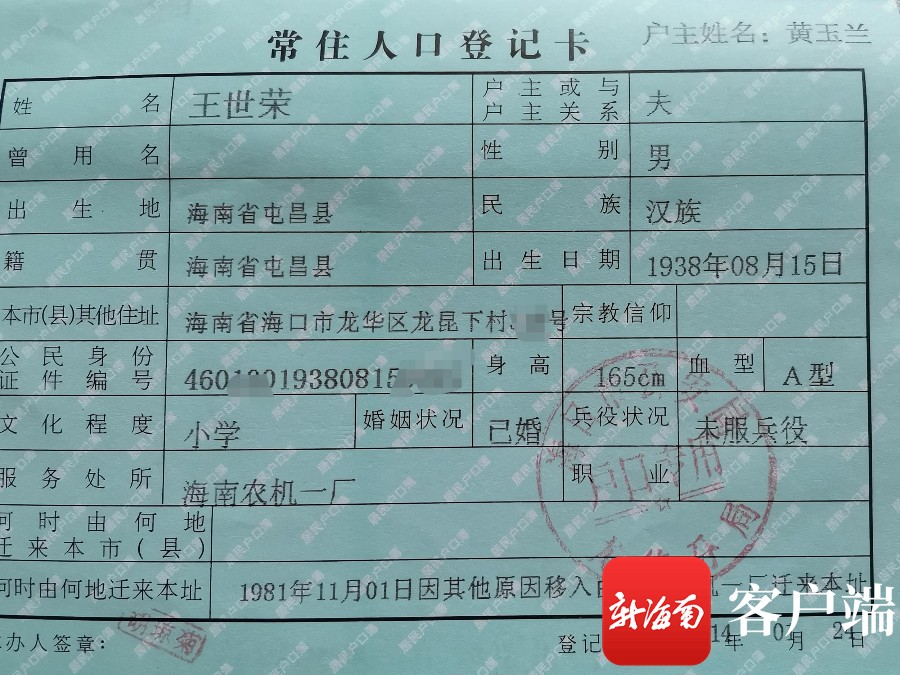 常住人口登记卡
户主姓名：黄玉兰
姓名 王世荣 户主或与户主关系 夫
曾用名 性别 男
出生地 海南省屯昌县 民族 汉族
籍贯 海南省屯昌县 出生日期 1938年08月15日
本市(县)其他住址 海南省海口市龙华区龙昆下村 号 宗教信仰
公民身份证件编号 4601 019380815 身高 165cm 血型 A型
文化程度 小学 婚姻状况 已婚 兵役状况 未服兵役
服务处所 海南农机一厂 职业
何时由何地迁来本市(县)
何时由何地迁来本址 1981年11月01日因其他原因移入 机一 迁来本址
承办人签章：
登记 14年 0 月 24日
户口专用
新海南
客户端